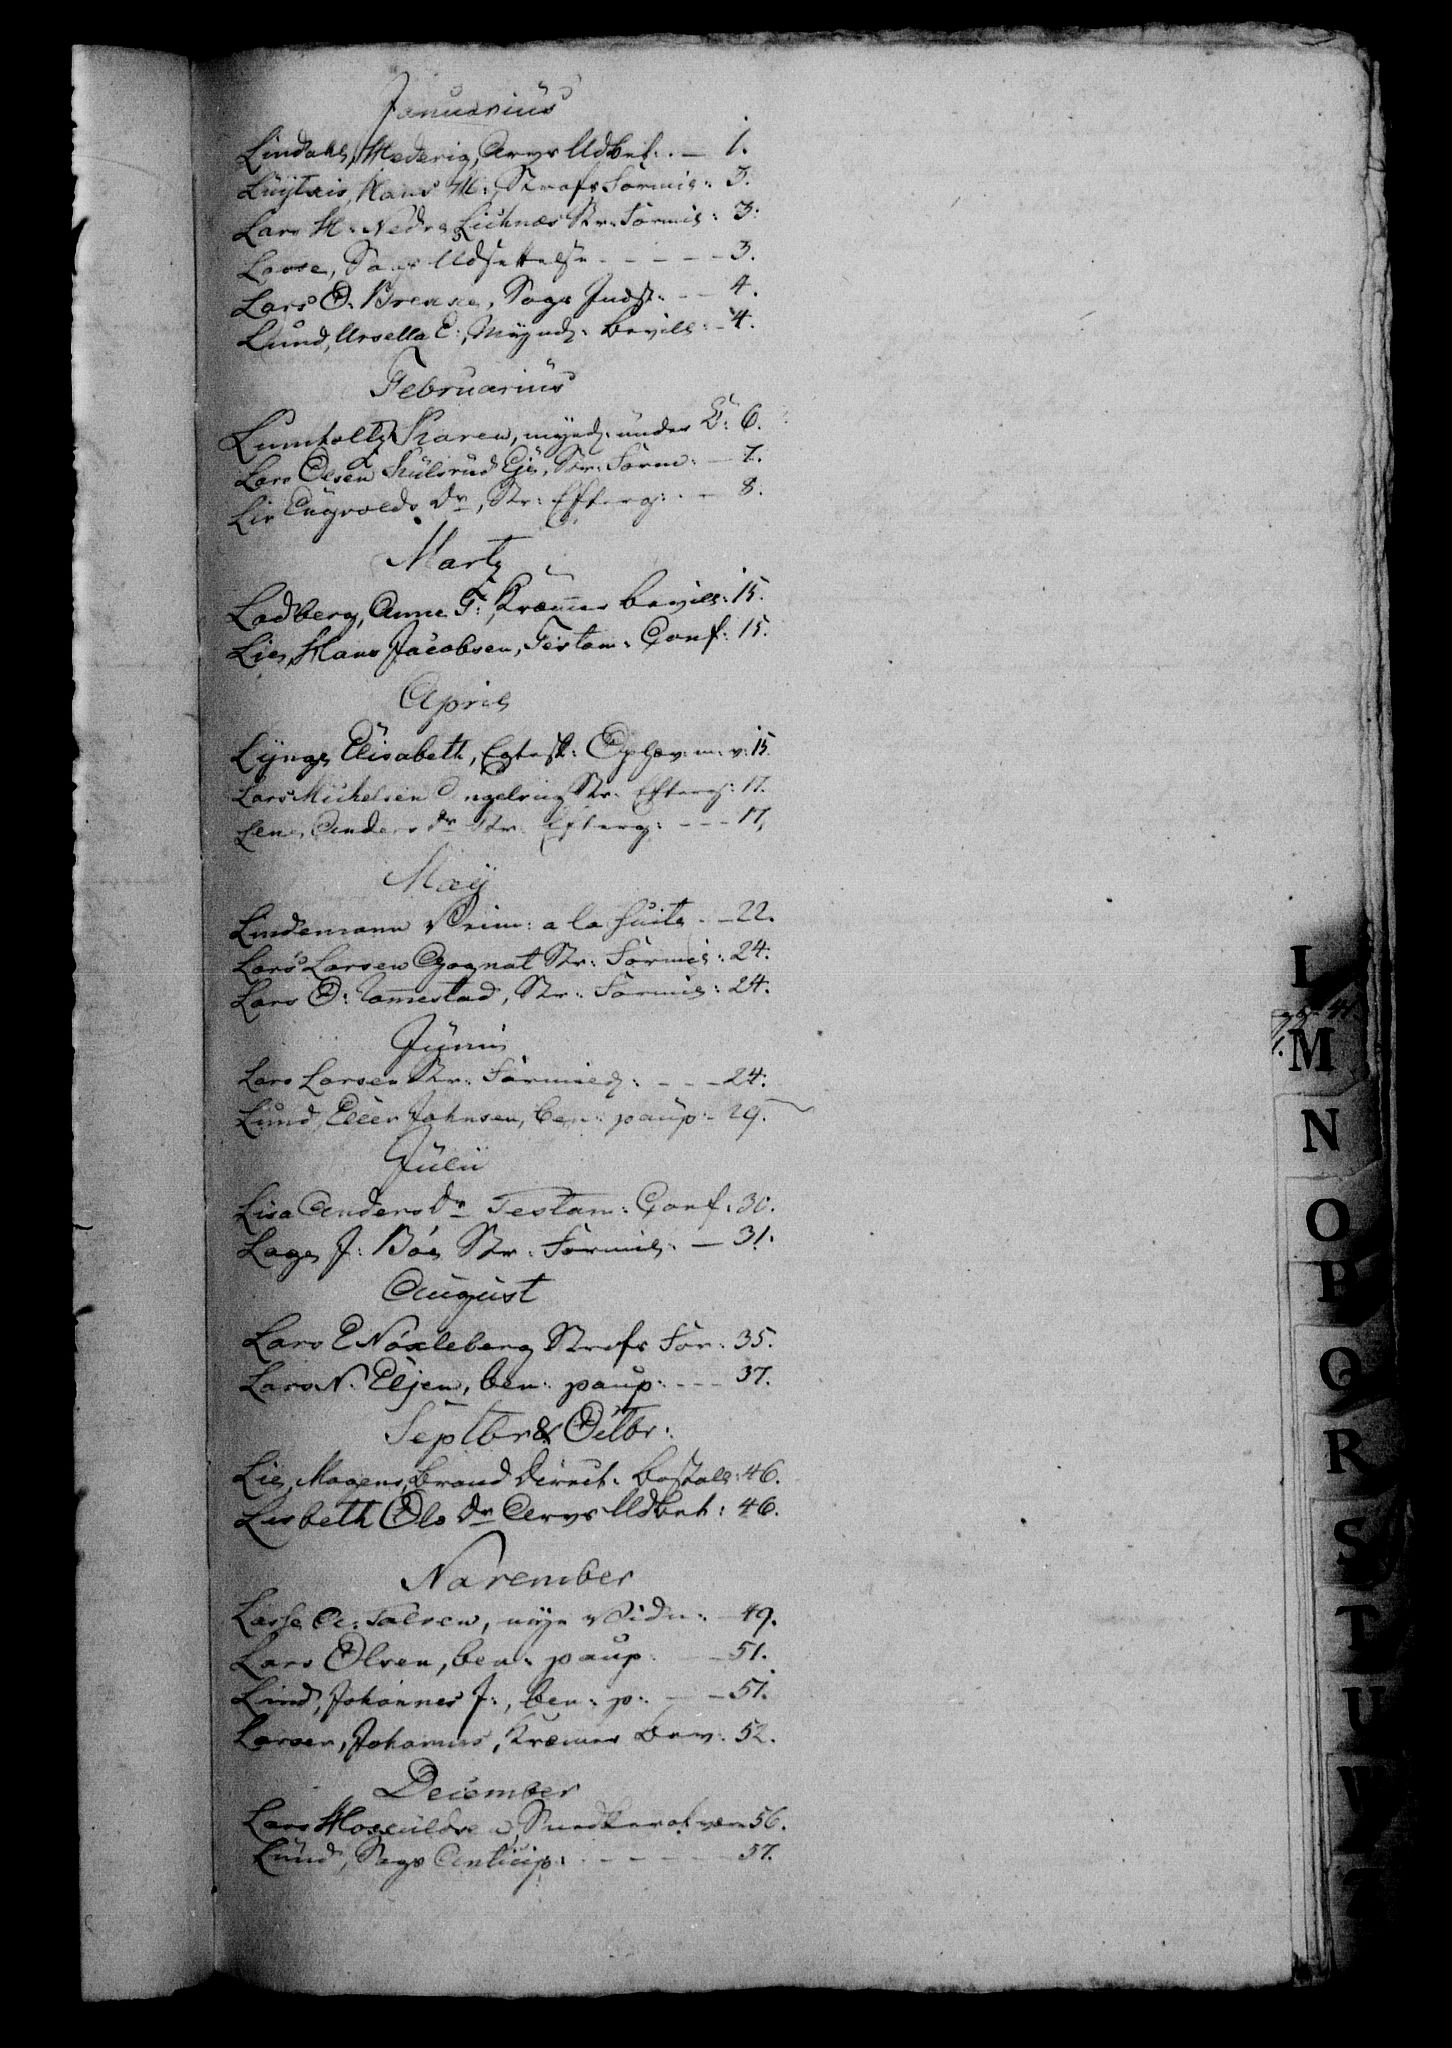 Januarius
Lindahl, Hederig, Arvs Udbet: . — 1.
Hans H: Strafs Formil: 3.
Lars H: Nedre Lichnæs Str: Formil: 3:
Lasse, Sags Udsættelse - - - - - 3.
Lars O. Brekke, Sags Indst: - - 4.
Lund, Ursella E:, Mÿnd: bevill: - 4.
Februarius
Lumholtz Karen, mynd: under C: 6.
Lars Olsen Kulsrud Eje, Str: Form: — 7.
Liv Engvolds Dr, Str: Efterg: . — 8.
Martz
Ladberg, Anne F:, Kræmmer bevill: 15.
Lie, Hans Jacobsen, Testam: Conf: 15.
April
Lÿnge Elisabeth, Egtesk: Ophæv: m: v: 15
Lars Michelsen Engelring Str: Efterg: 17.
Lene Anders Dr Str: Efterg: - - - 17,
Maÿ
Lindemann Prim: a la Suite . — 22.
Lars Larsen Str: Formil: 24.
Lars O: Tommestad, Str: Formil: 24.
Jÿnii
Lars Larsen Str: Formild: - - - 24:
Lund, Elier Johnsen, ben: paup: - 29.
Julii
Lisa Anders Dr Testam: Conf: 30.
Lage J: Bóe Str: Formil: — 31.
August
Lars E Nóxleberg Strafs For: 35.
Lars N. Eljen, ben: paup: - - - 37.
Septbr & Octbr:
Lie, Mogens, Brand Direct: bestall: 46.
Lisbeth Ols Dr Arvs Udbet: 46.
November
Lasse A: Salven, nÿe Vidn: — 49.
Lars Olsen, ben: paup: - — 51.
Lind, Johannes J:, ben: p: - — 51.
Larsen, Johannes, Kræmmer bev: 52.
December
Lars Hoxuldsen, 56.
Lund, Sags Anticip: . - - - - - 57.
L
M
N
O
P
Q
R
S
T
U
W